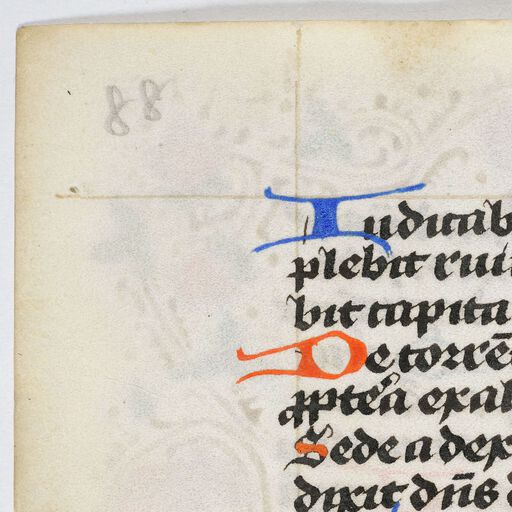 88
Iudicab
plebit rui
bit capita
De torrē
ꝓpteā exal
Sede a dex
dixit dn̄s d